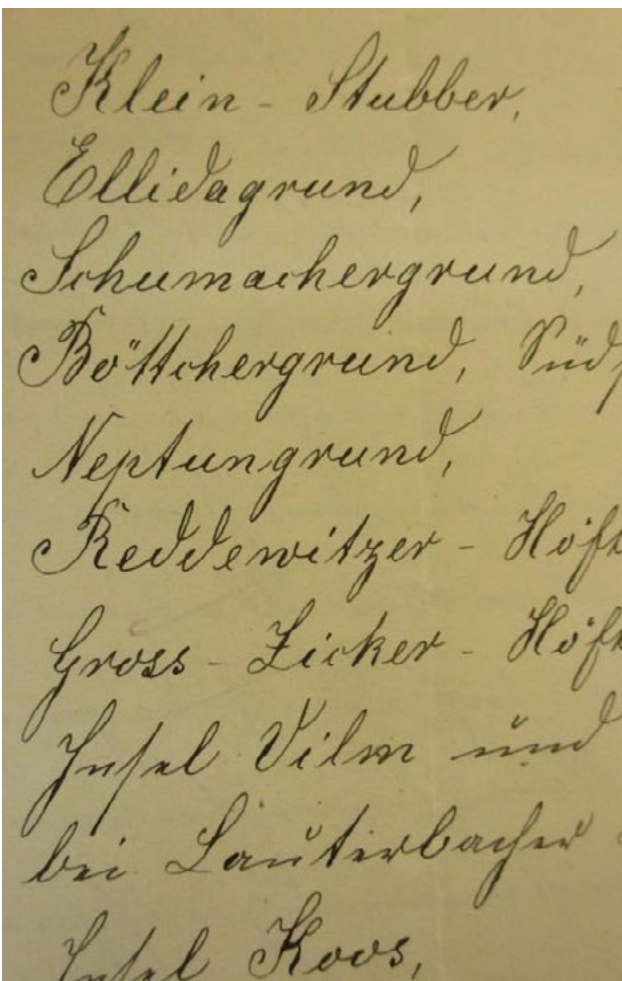 Klein - Stubber,
Ellidagrund,
Schumachergrund,
Böttchergrund, Süd
Neptungrund,
Reddewitzer - Höft
Gross - Zicker - Höft
Insel Vilm und
bei Lauterbacher
Insel Koos,